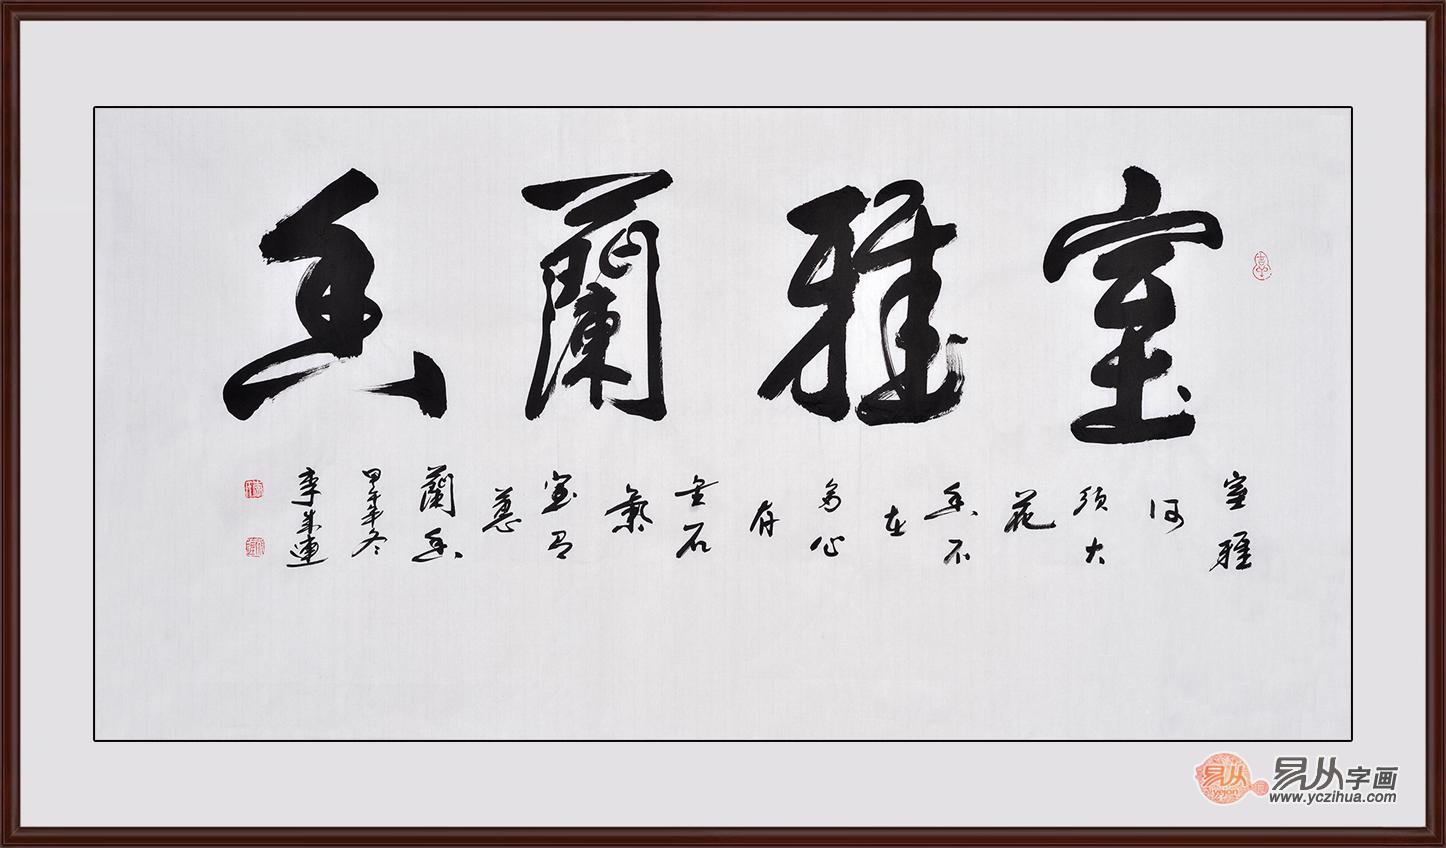 室雅蘭香
室雅
何
須大
花
香不
在
多心
存
金石
氣
室有
蕙
蘭香
甲午年冬
李成連
易从字画
www.yczihua.com